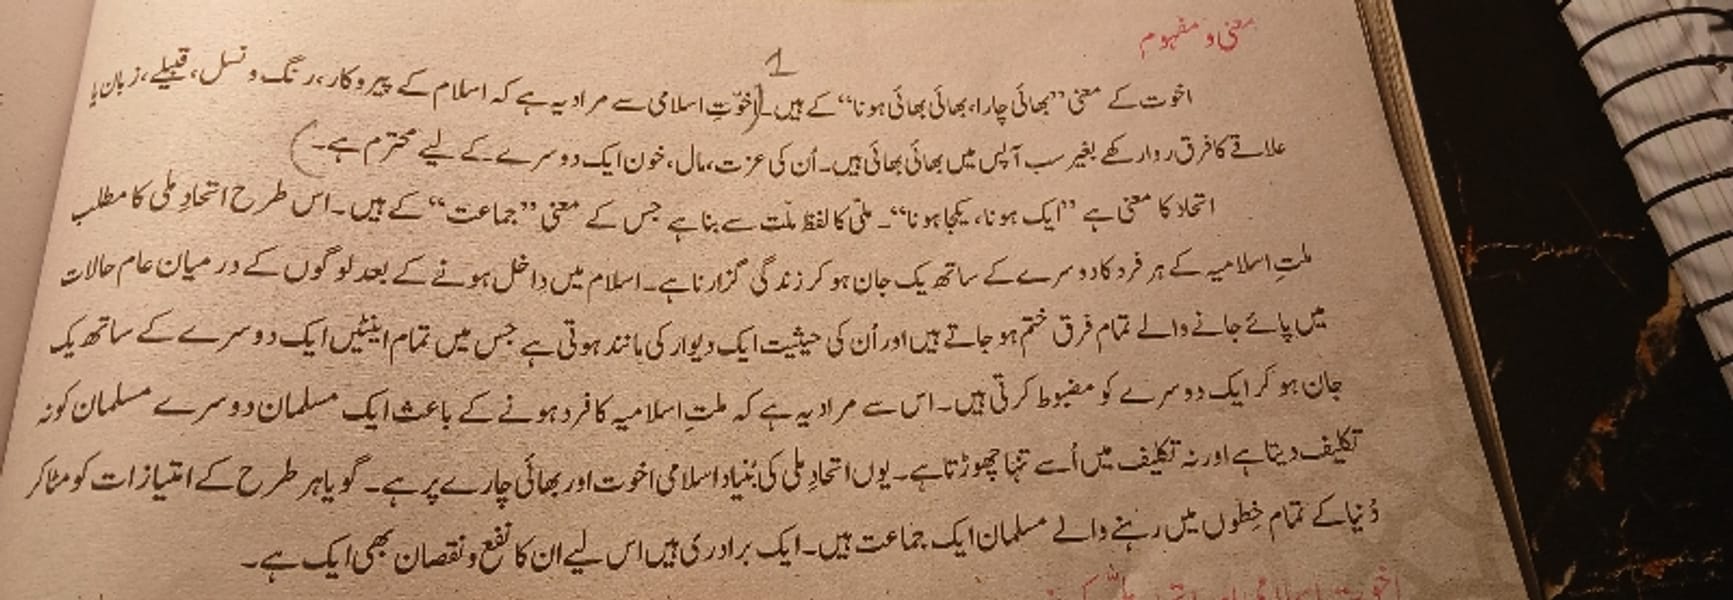 معنی و مفہوم
1
اخوت کے معنی ”بھائی چارا، بھائی بھائی ہونا“ کے ہیں۔ (اخوّتِ اسلامی سے مراد یہ ہے کہ اسلام کے پیروکار، رنگ و نسل، قبیلے، زبان یا
علاقے کا فرق روا رکھے بغیر سب آپس میں بھائی بھائی ہیں۔ اُن کی عزت، مال، خون ایک دوسرے کے لیے محترم ہے۔)
اتحاد کا معنی ہے ”ایک ہونا، یکجا ہونا“۔ ملّی کا لفظ ملّت سے بنا ہے جس کے معنی ”جماعت“ کے ہیں۔ اس طرح اتحادِ ملی کا مطلب
ملتِ اسلامیہ کے ہر فرد کا دوسرے کے ساتھ یک جان ہو کر زندگی گزارنا ہے۔ اسلام میں داخل ہونے کے بعد لوگوں کے درمیان عام حالات
میں پائے جانے والے تمام فرق ختم ہو جاتے ہیں اور اُن کی حیثیت ایک دیوار کی مانند ہوتی ہے جس میں تمام اینٹیں ایک دوسرے کے ساتھ یک
جان ہو کر ایک دوسرے کو مضبوط کرتی ہیں۔ اس سے مراد یہ ہے کہ ملتِ اسلامیہ کا فرد ہونے کے باعث ایک مسلمان دوسرے مسلمان کو نہ
تکلیف دیتا ہے اور نہ تکلیف میں اُسے تنہا چھوڑتا ہے۔ یوں اتحادِ ملی کی بُنیاد اسلامی اخوت اور بھائی چارے پر ہے۔ گویا ہر طرح کے امتیازات کو مٹا کر
دُنیا کے تمام خطوں میں رہنے والے مسلمان ایک جماعت ہیں۔ ایک برادری ہیں اس لیے ان کا نفع و نقصان بھی ایک ہے۔